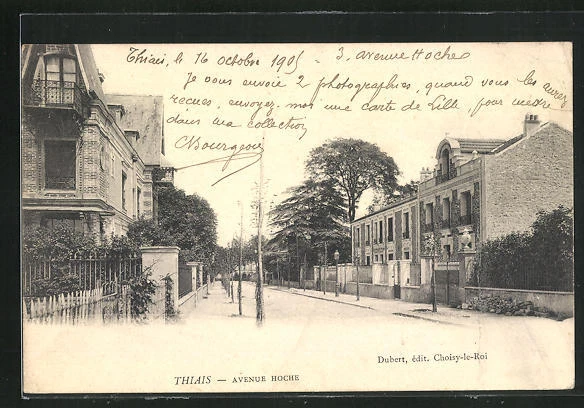 Thiais, le 16 octobre 1905 - 3, avenue Hoche
Je vous envoie 2 photographies, quand vous les aurez
recues, envoyez-moi une carte de Lille pour mettre
dans ma collection
Bourgeois
Dubert, édit. Choisy-le-Roi
THIAIS — AVENUE HOCHE